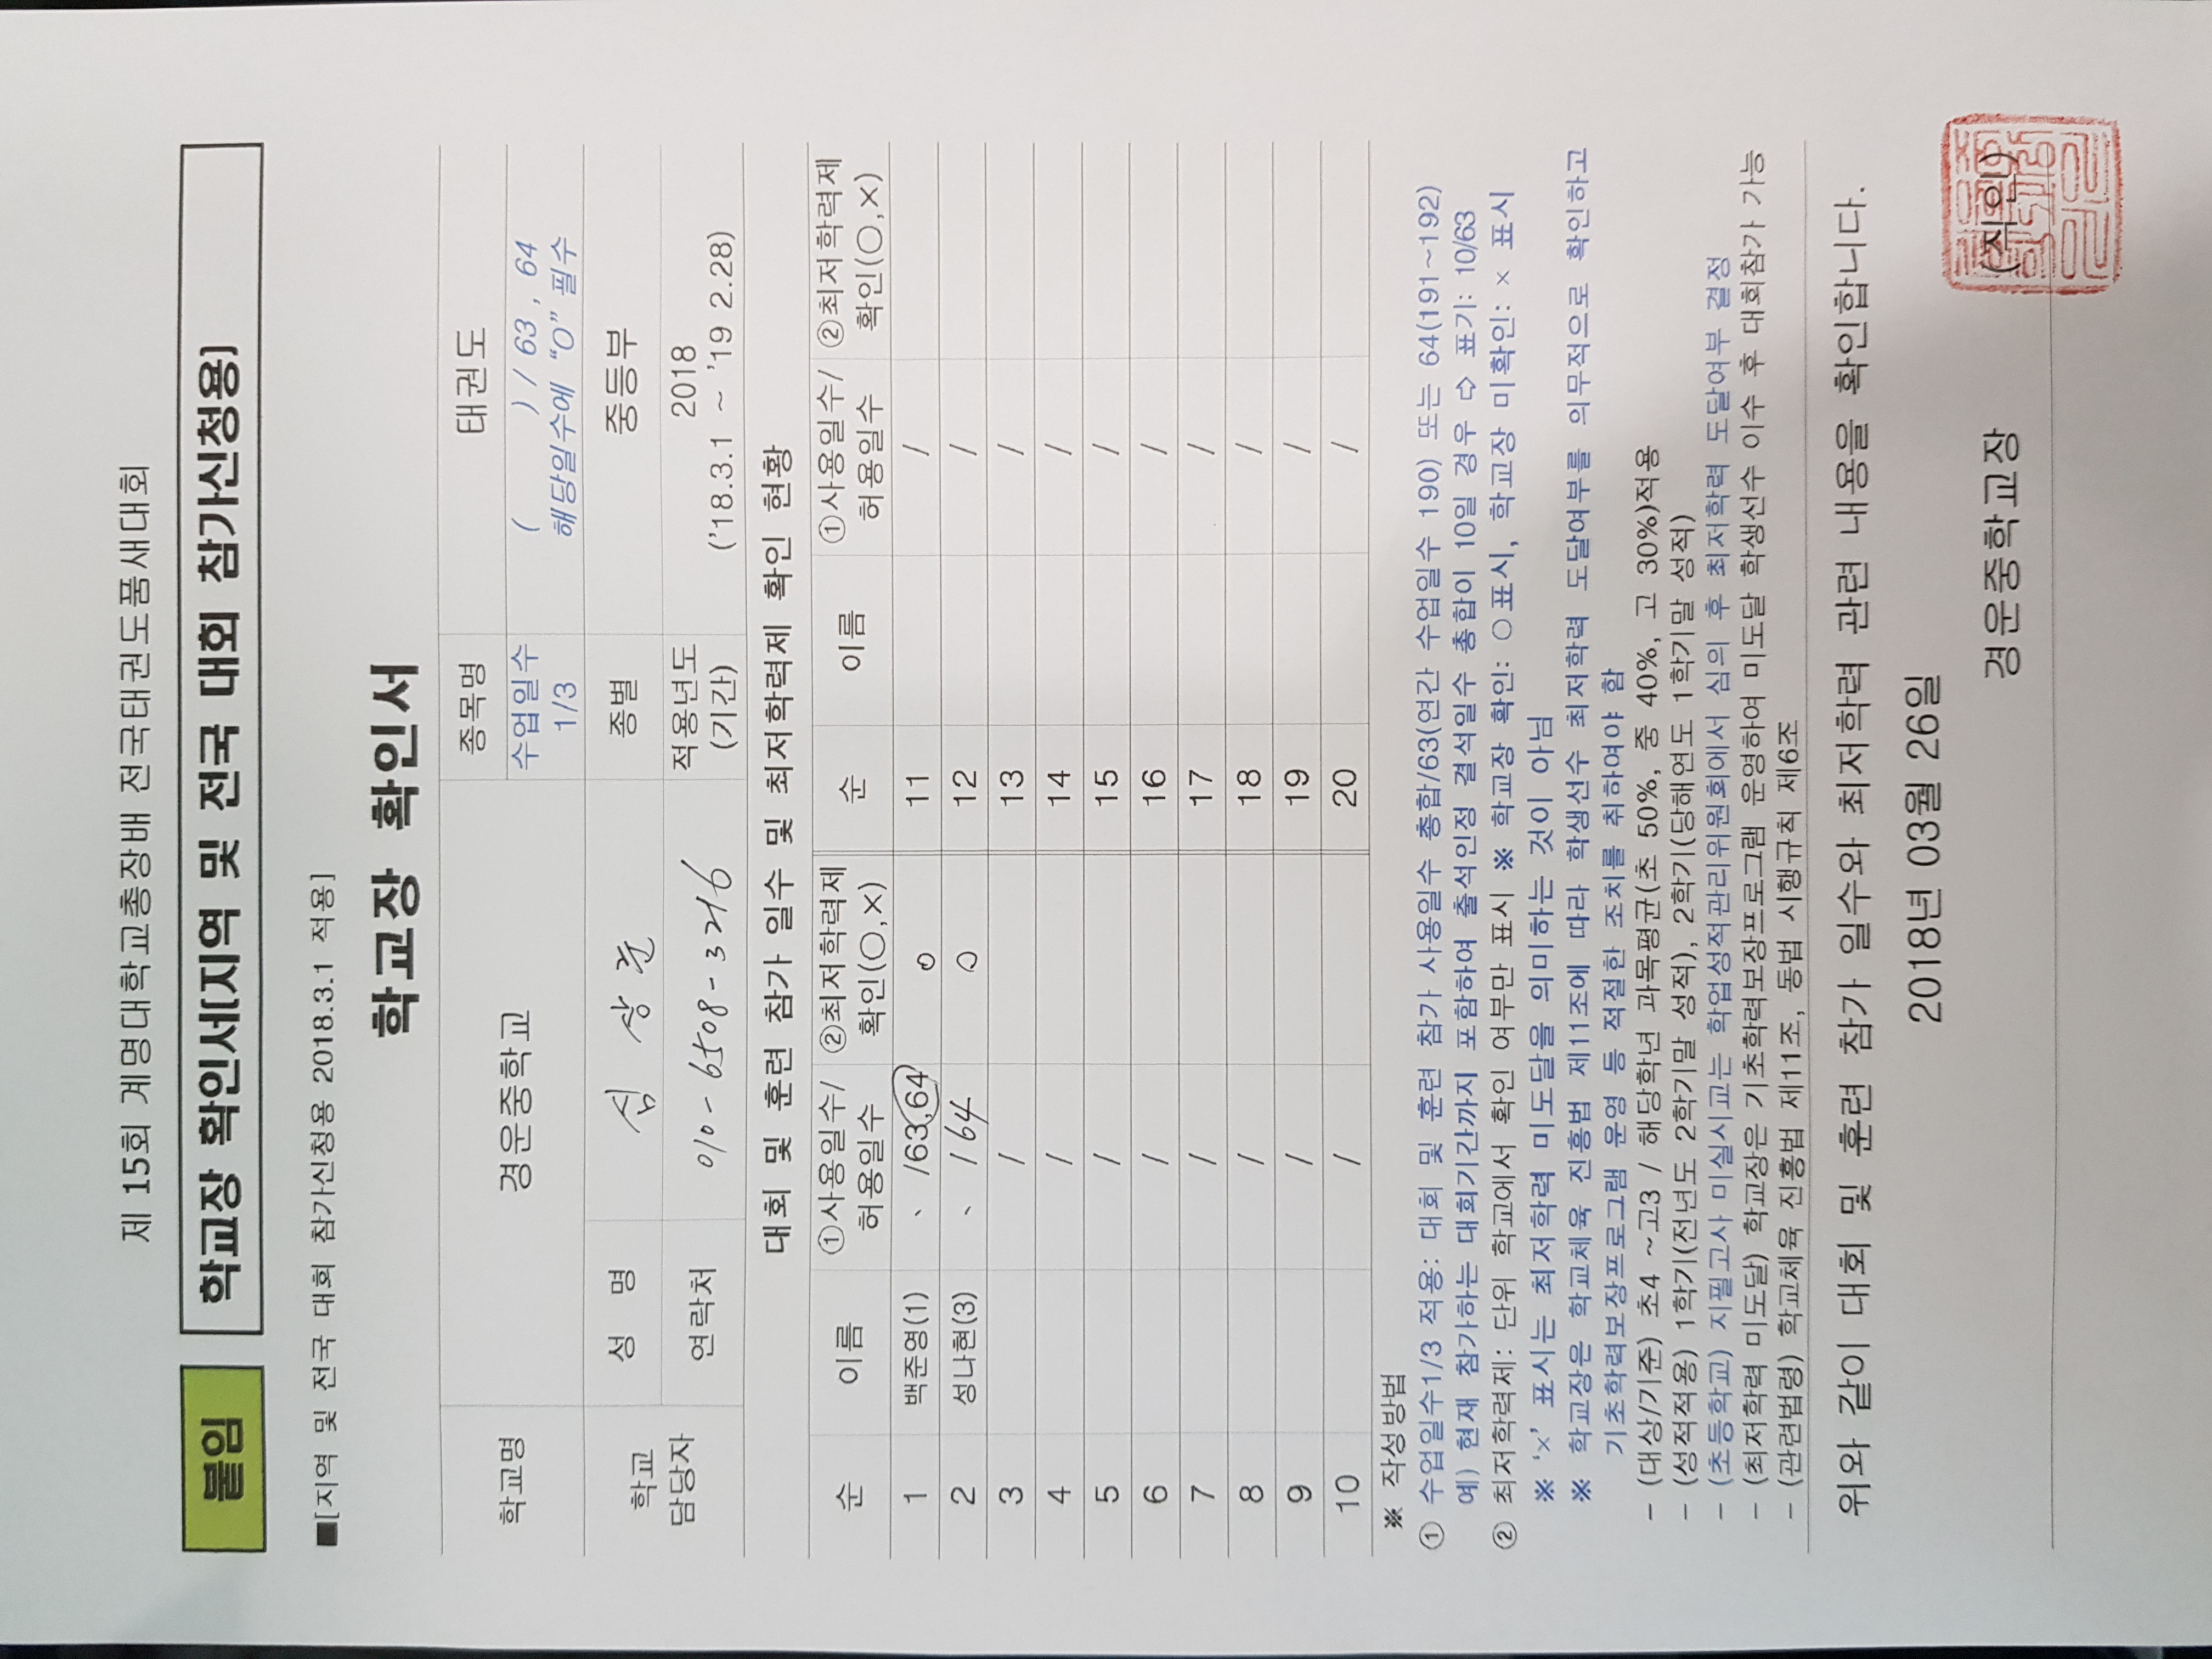 제 15회 계명대학교총장배 전국태권도품새대회
붙임 학교장 확인서[지역 및 전국 대회 참가신청용]
■[지역 및 전국 대회 참가신청용 2018.3.1 적용]
학교장 확인서
학교명 경운중학교 종목명 태권도
수업일수 1/3 ( ) / 63 , 64
해당일수에 "O" 필수
학교 담당자 성 명 심상훈 종별 중등부
연락처 010-6508-3216 적용년도 (기간) 2018
('18.3.1 ~ '19 2.28)
대회 및 훈련 참가 일수 및 최저학력제 확인 현황
순 이름 ①사용일수/허용일수 ②최저학력제 확인(○,×) 순 이름 ①사용일수/허용일수 ②최저학력제 확인(○,×)
1 백준영(1) 、 /63,64 ○ 11 /
2 성나현(3) 、 / 64 ○ 12 /
3 / 13 /
4 / 14 /
5 / 15 /
6 / 16 /
7 / 17 /
8 / 18 /
9 / 19 /
10 / 20 /
※ 작성방법
① 수업일수1/3 적용: 대회 및 훈련 참가 사용일수 총합/63(연간 수업일수 190) 또는 64(191~192)
예) 현재 참가하는 대회기간까지 포함하여 출석인정 결석일수 총합이 10일 경우 ⇨ 표기: 10/63
② 최저학력제: 단위 학교에서 확인 여부만 표시 ※ 학교장 확인: ○ 표시, 학교장 미확인: × 표시
※ '×' 표시는 최저학력 미도달을 의미하는 것이 아님
※ 학교장은 학교체육 진흥법 제11조에 따라 학생선수 최저학력 도달여부를 의무적으로 확인하고
기초학력보장프로그램 운영 등 적절한 조치를 취하여야 함
- (대상/기준) 초4 ~고3 / 해당학년 과목평균(초 50%, 중 40%, 고 30%)적용
- (성적적용) 1학기(전년도 2학기말 성적), 2학기(당해연도 1학기말 성적)
- (초등학교) 지필고사 미실시교는 학업성적관리위원회에서 심의 후 최저학력 도달여부 결정
- (최저학력 미도달) 학교장은 기초학력보장프로그램 운영하여 미도달 학생선수 이수 후 대회참가 가능
- (관련법령) 학교체육 진흥법 제11조, 동법 시행규칙 제6조
위와 같이 대회 및 훈련 참가 일수와 최저학력 관련 내용을 확인합니다.
2018년 03월 26일
경운중학교장 (직인)